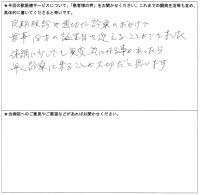 ★今回の獣医療サービスについて、「患者様の声」をお聞かせください。これまでの闘病生活等も含め、
具体的に書いてくださると幸いです。
定期検診や適切な診察のおかげで
無事18才の誕生日を迎えることができました
体調に少しでも異変、気になる事があったら
早く診察に来ることが大切だと思います
★当病院へのご意見やご要望などがあればお聞かせください。